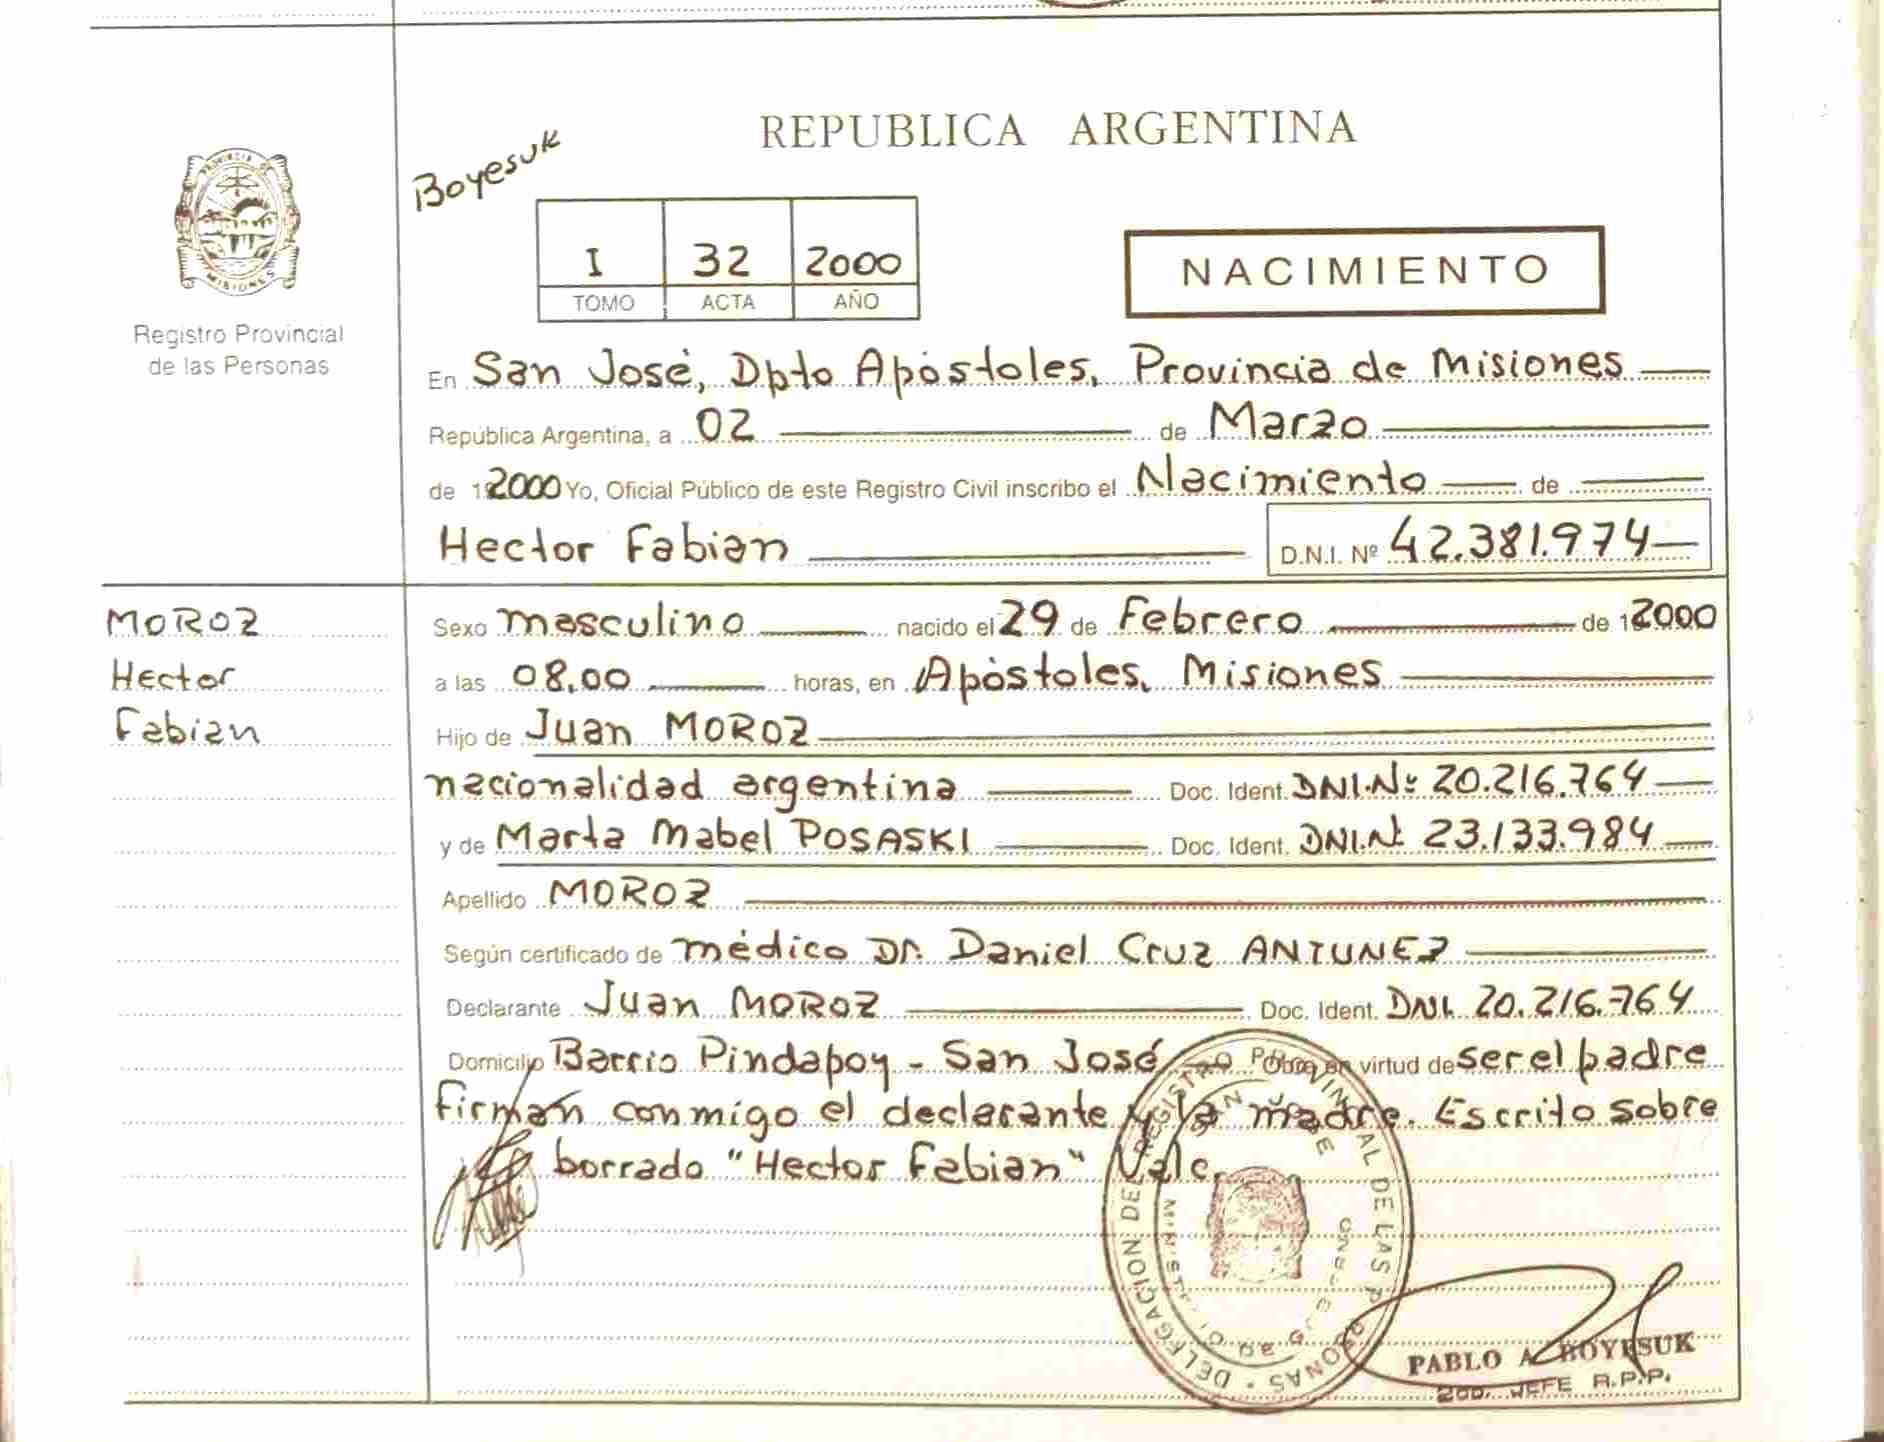 REPUBLICA ARGENTINA
Boyesuk
PROVINCIA DE
MISIONES
Registro Provincial
de las Personas
I 32 2000
TOMO ACTA AÑO
NACIMIENTO
En San José, Dpto Apóstoles, Provincia de Misiones
República Argentina, a 02 de Marzo
de 2000 Yo, Oficial Público de este Registro Civil inscribo el Nacimiento de
Hector Fabian D.N.I. Nº 42.381.974
MOROZ
Hector
Fabian
Sexo masculino nacido el 29 de Febrero de 2000
a las 08,00 horas, en Apóstoles, Misiones
Hijo de Juan MOROZ
nacionalidad argentina Doc. Ident. DNI.Nº 20.216.764
y de Marta Mabel POSASKI Doc. Ident. DNI.Nº 23.133.984
Apellido MOROZ
Según certificado de médico Dr. Daniel Cruz ANTUNEZ
Declarante Juan MOROZ Doc. Ident. DNI. 20.216.764
Domicilio Barrio Pindapoy - San José Obra en virtud de ser el padre
firman conmigo el declarante y la madre. Escrito sobre
borrado "Hector Fabian" Vale.
DELEGACION DEL REGISTRO PROVINCIAL DE LAS PERSONAS
PABLO A. BOYESUK
2DO. JEFE R.P.P.